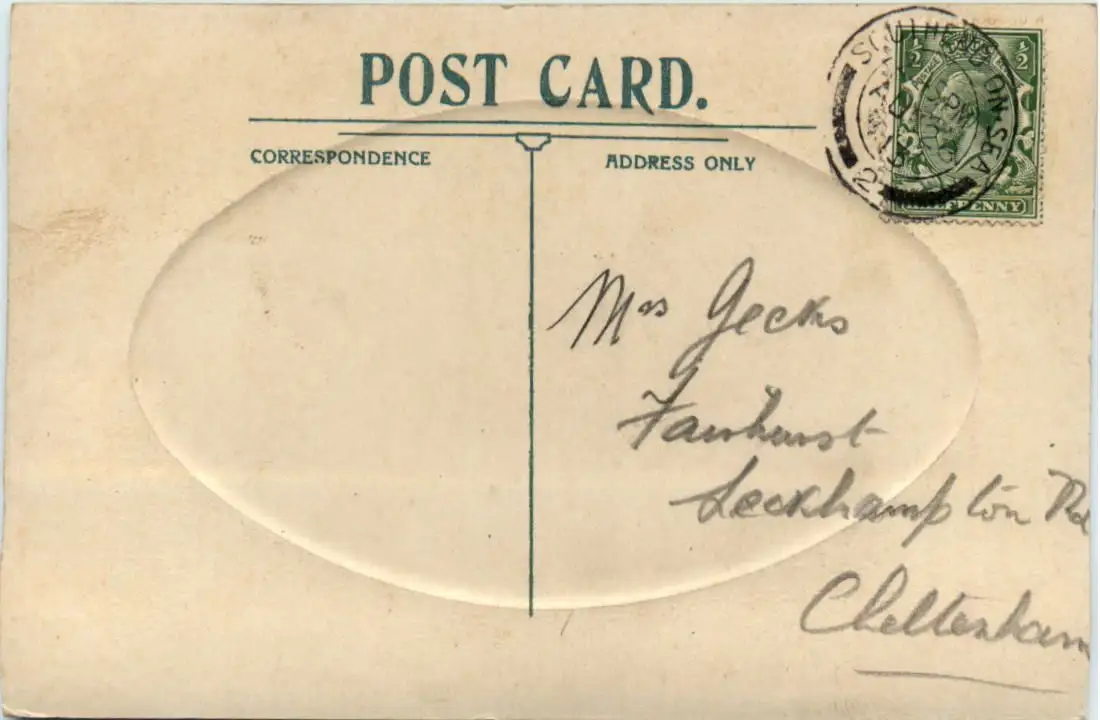 POST CARD.
CORRESPONDENCE
ADDRESS ONLY
SOUTHEND-ON-SEA
1/2
1/2
HALFPENNY
Mrs Gecks
Fairhurst
Leckhampton Rd
Cheltenham